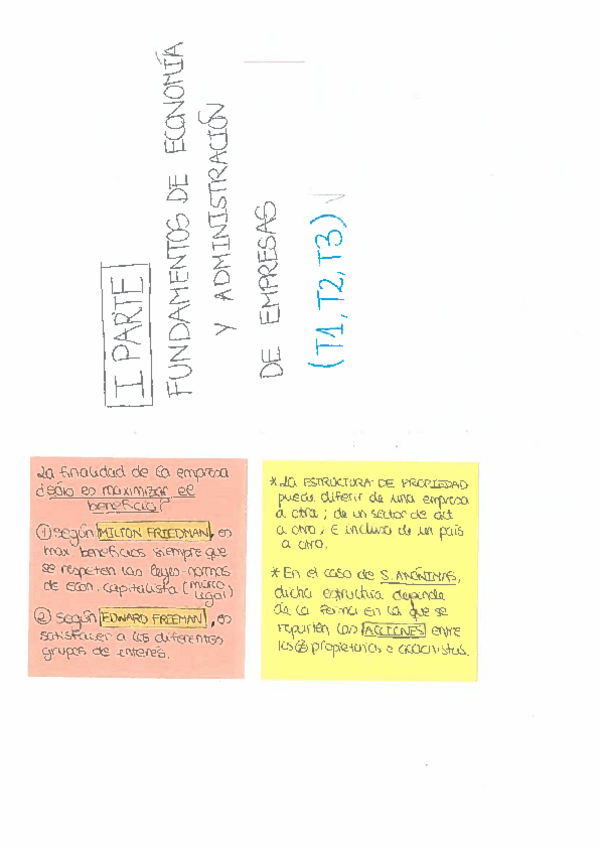 I PARTE
FUNDAMENTOS DE ECONOMÍA
Y ADMINISTRACIÓN
DE EMPRESAS
(T1, T2, T3)
La finalidad de la empresa
¿sólo es maximizar el
beneficio?
① Según MILTON FRIEDMAN, es
max beneficios siempre que
se respeten las leyes-normas
de econ. capitalista (marco
legal)
② Según EDWARD FREEMAN, es
satisfacer a los diferentes
grupos de interés.
* La ESTRUCTURA DE PROPIEDAD
puede diferir de una empresa
a otra; de un sector de act
a otro, E incluso de un país
a otro.
* En el caso de S. ANÓNIMAS,
dicha estructura depende
de la forma en la que se
reparten las ACCIONES entre
los propietarios o accionistas.